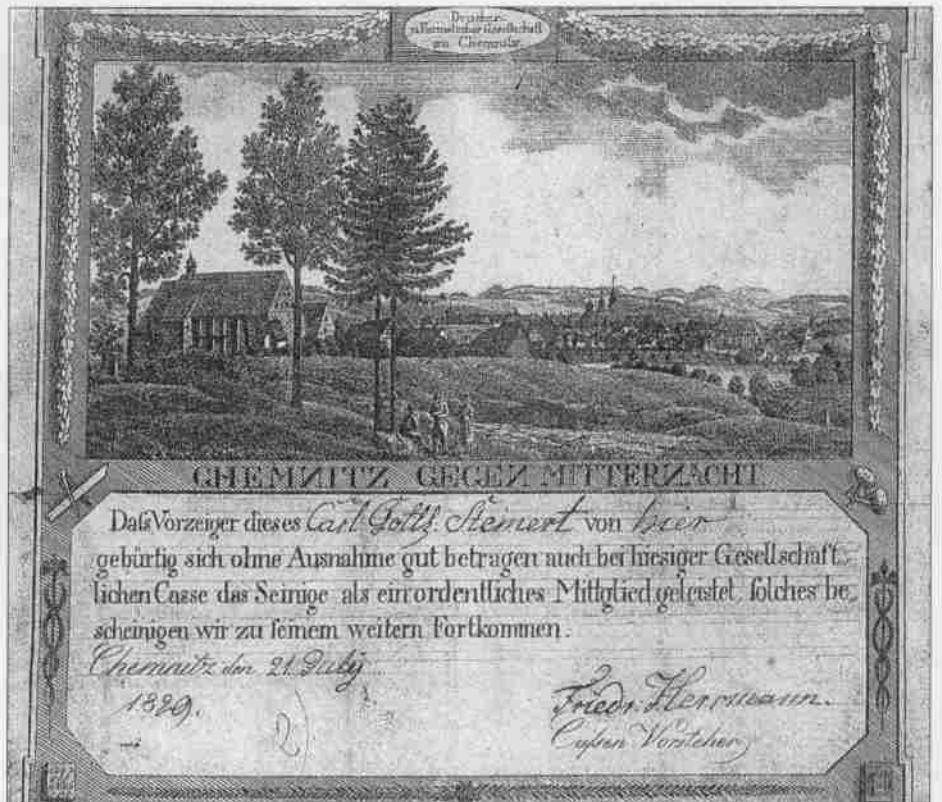 Drucker-
u. Formstecher Gesellschaft
zu Chemnitz
CHEMNITZ GEGEN MITTERNACHT.
Daſs Vorzeiger dieses Carl Gottl. Steinert von hier
gebürtig sich ohne Ausnahme gut betragen auch bei hiesiger Gesellschaft-
lichen Casse das Seinige als ein ordentliches Mittglied geleistet, ſolches be-
scheinigen wir zu ſeinem weitern Fortkommen.
Chemnitz den 21. July
1829.
2)
Friedr. Herrmann.
Cassen Vorsteher